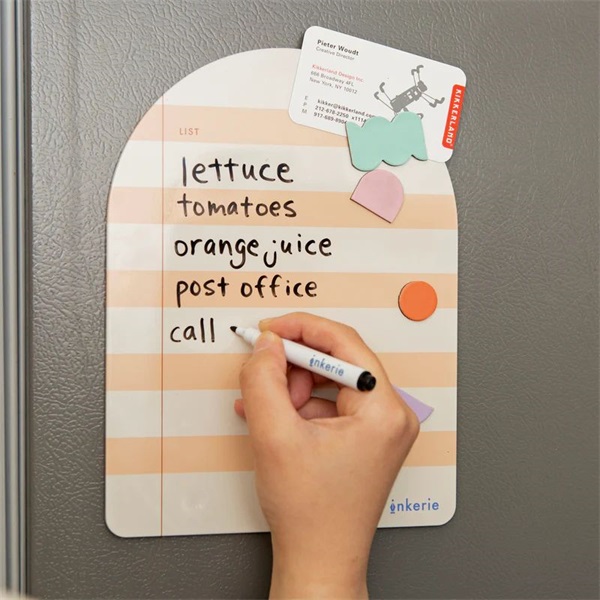 Pieter Woudt
Creative Director
Kikkerland Design Inc.
666 Broadway 4FL
New York, NY 10012
E kikker@kikkerland.com
P 212-678-2250 x111
M 917-689-
KIKKERLAND
LIST
lettuce
tomatoes
orange juice
post office
call
inkerie
inkerie